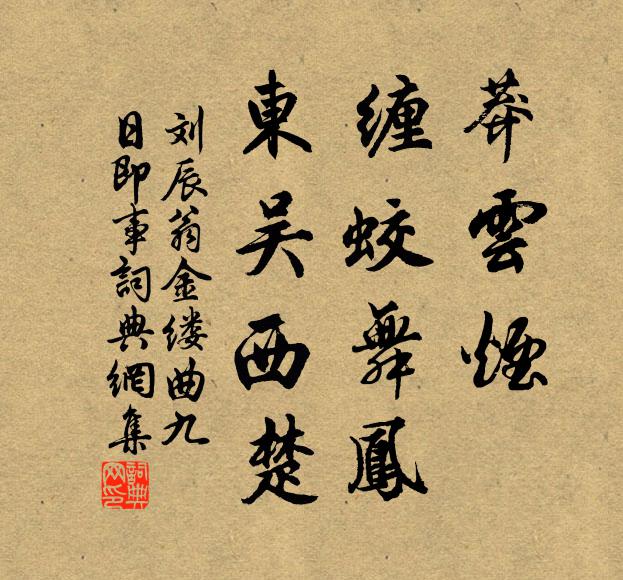 莽雲煙
纏蛟舞鳳
東吴西楚
刘辰翁金缕曲九
日即事詞典網集
詞典
网印